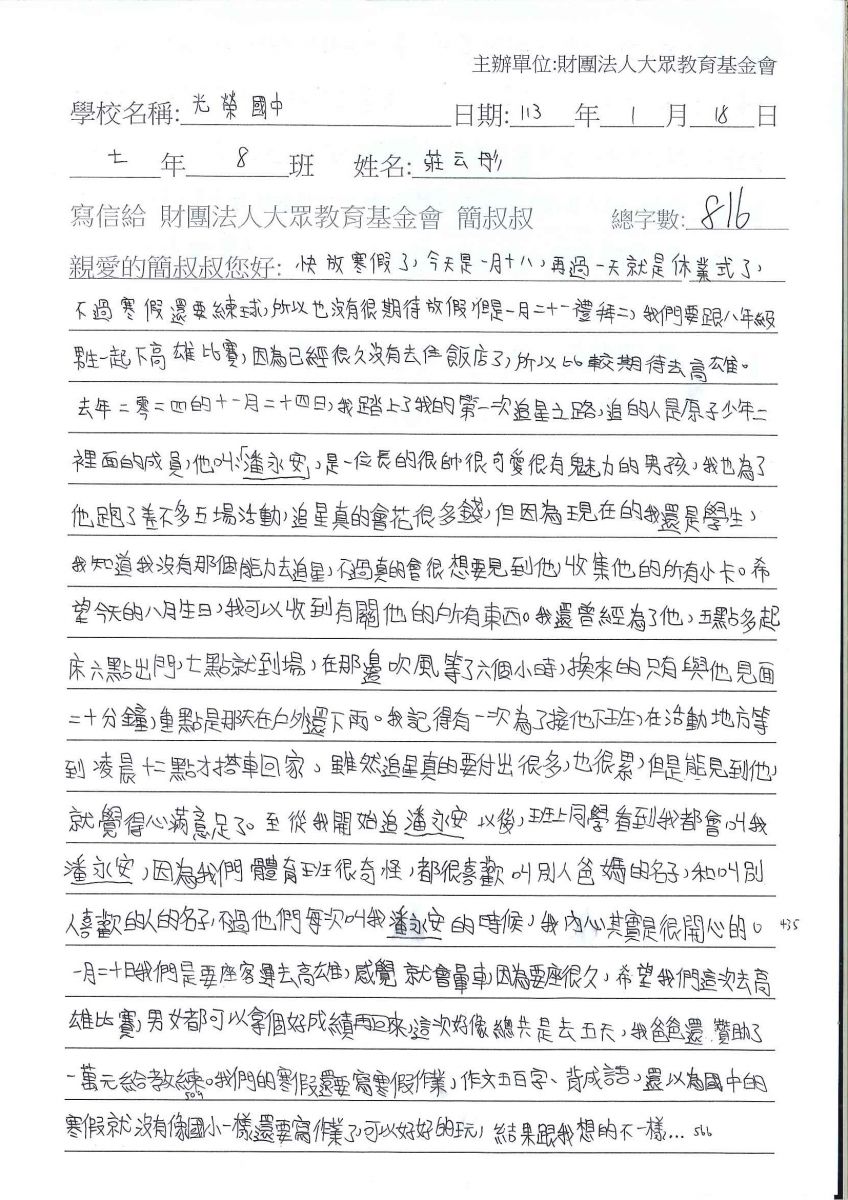 主辦單位:財團法人大眾教育基金會
學校名稱: 光榮國中 日期: 113 年 1 月 18 日
七 年 8 班 姓名: 莊云彤
寫信給 財團法人大眾教育基金會 簡叔叔 總字數: 816
親愛的簡叔叔您好: 快放寒假了,今天是一月十八,再過一天就是休業式了,
不過寒假還要練球,所以也沒有很期待放假,但是一月二十一禮拜二,我們要跟八年級
男生一起下高雄比賽,因為已經很久沒有去住飯店了,所以比較期待去高雄。
去年二零二四的十一月二十四日,我踏上了我的第一次追星之路,追的人是原子少年二
裡面的成員,他叫「潘永安」,是一位長的很帥很可愛很有魅力的男孩,我也為了
他跑了差不多五場活動,追星真的會花很多錢,但因為現在的我還是學生,
我知道我沒有那個能力去追星,不過真的會很想要見到他,收集他的所有小卡。希
望今天的八月生日,我可以收到有關他的所有東西。我還曾經為了他,五點多起
床六點出門,七點就到場,在那邊吹風等了六個小時,換來的只有與他見面
二十分鐘,重點是那天在戶外還下雨。我記得有一次為了接他下班,在活動地方等
到凌晨十二點才搭車回家、雖然追星真的要付出很多,也很累,但是能見到他,
就覺得心滿意足了。至從我開始追潘永安以後,班上同學看到我都會叫我
潘永安,因為我們體育班很奇怪,都很喜歡叫別人爸媽的名子,和叫別
人喜歡的人的名子,不過他們每次叫我潘永安的時候,我內心其實是很開心的。 435
一月二十日我們是要座客運去高雄,感覺就會暈車,因為要座很久,希望我們這次去高
雄比賽,男女都可以拿個好成績再回來,這次好像總共是去五天,我爸爸還贊助了
一萬元給教練。我們的寒假還要寫寒假作業,作文五百字、背成語,還以為國中的
509
寒假就沒有像國小一樣還要寫作業了,可以好好的玩,結果跟我想的不一樣... 566